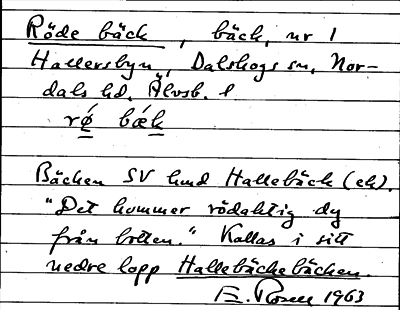 Röde bäck, bäck, nr 1
Hallersbyn, Dalskogs sn, Nor-
dals hd. Älvsb. l
rǿ bǽk
Bäcken SV hmd Hallebäck (ek).
"Det kommer rödaktig dy
från botten." Kallas i sitt
nedre lopp Hallebäckebäcken.
E. Rosell 1963